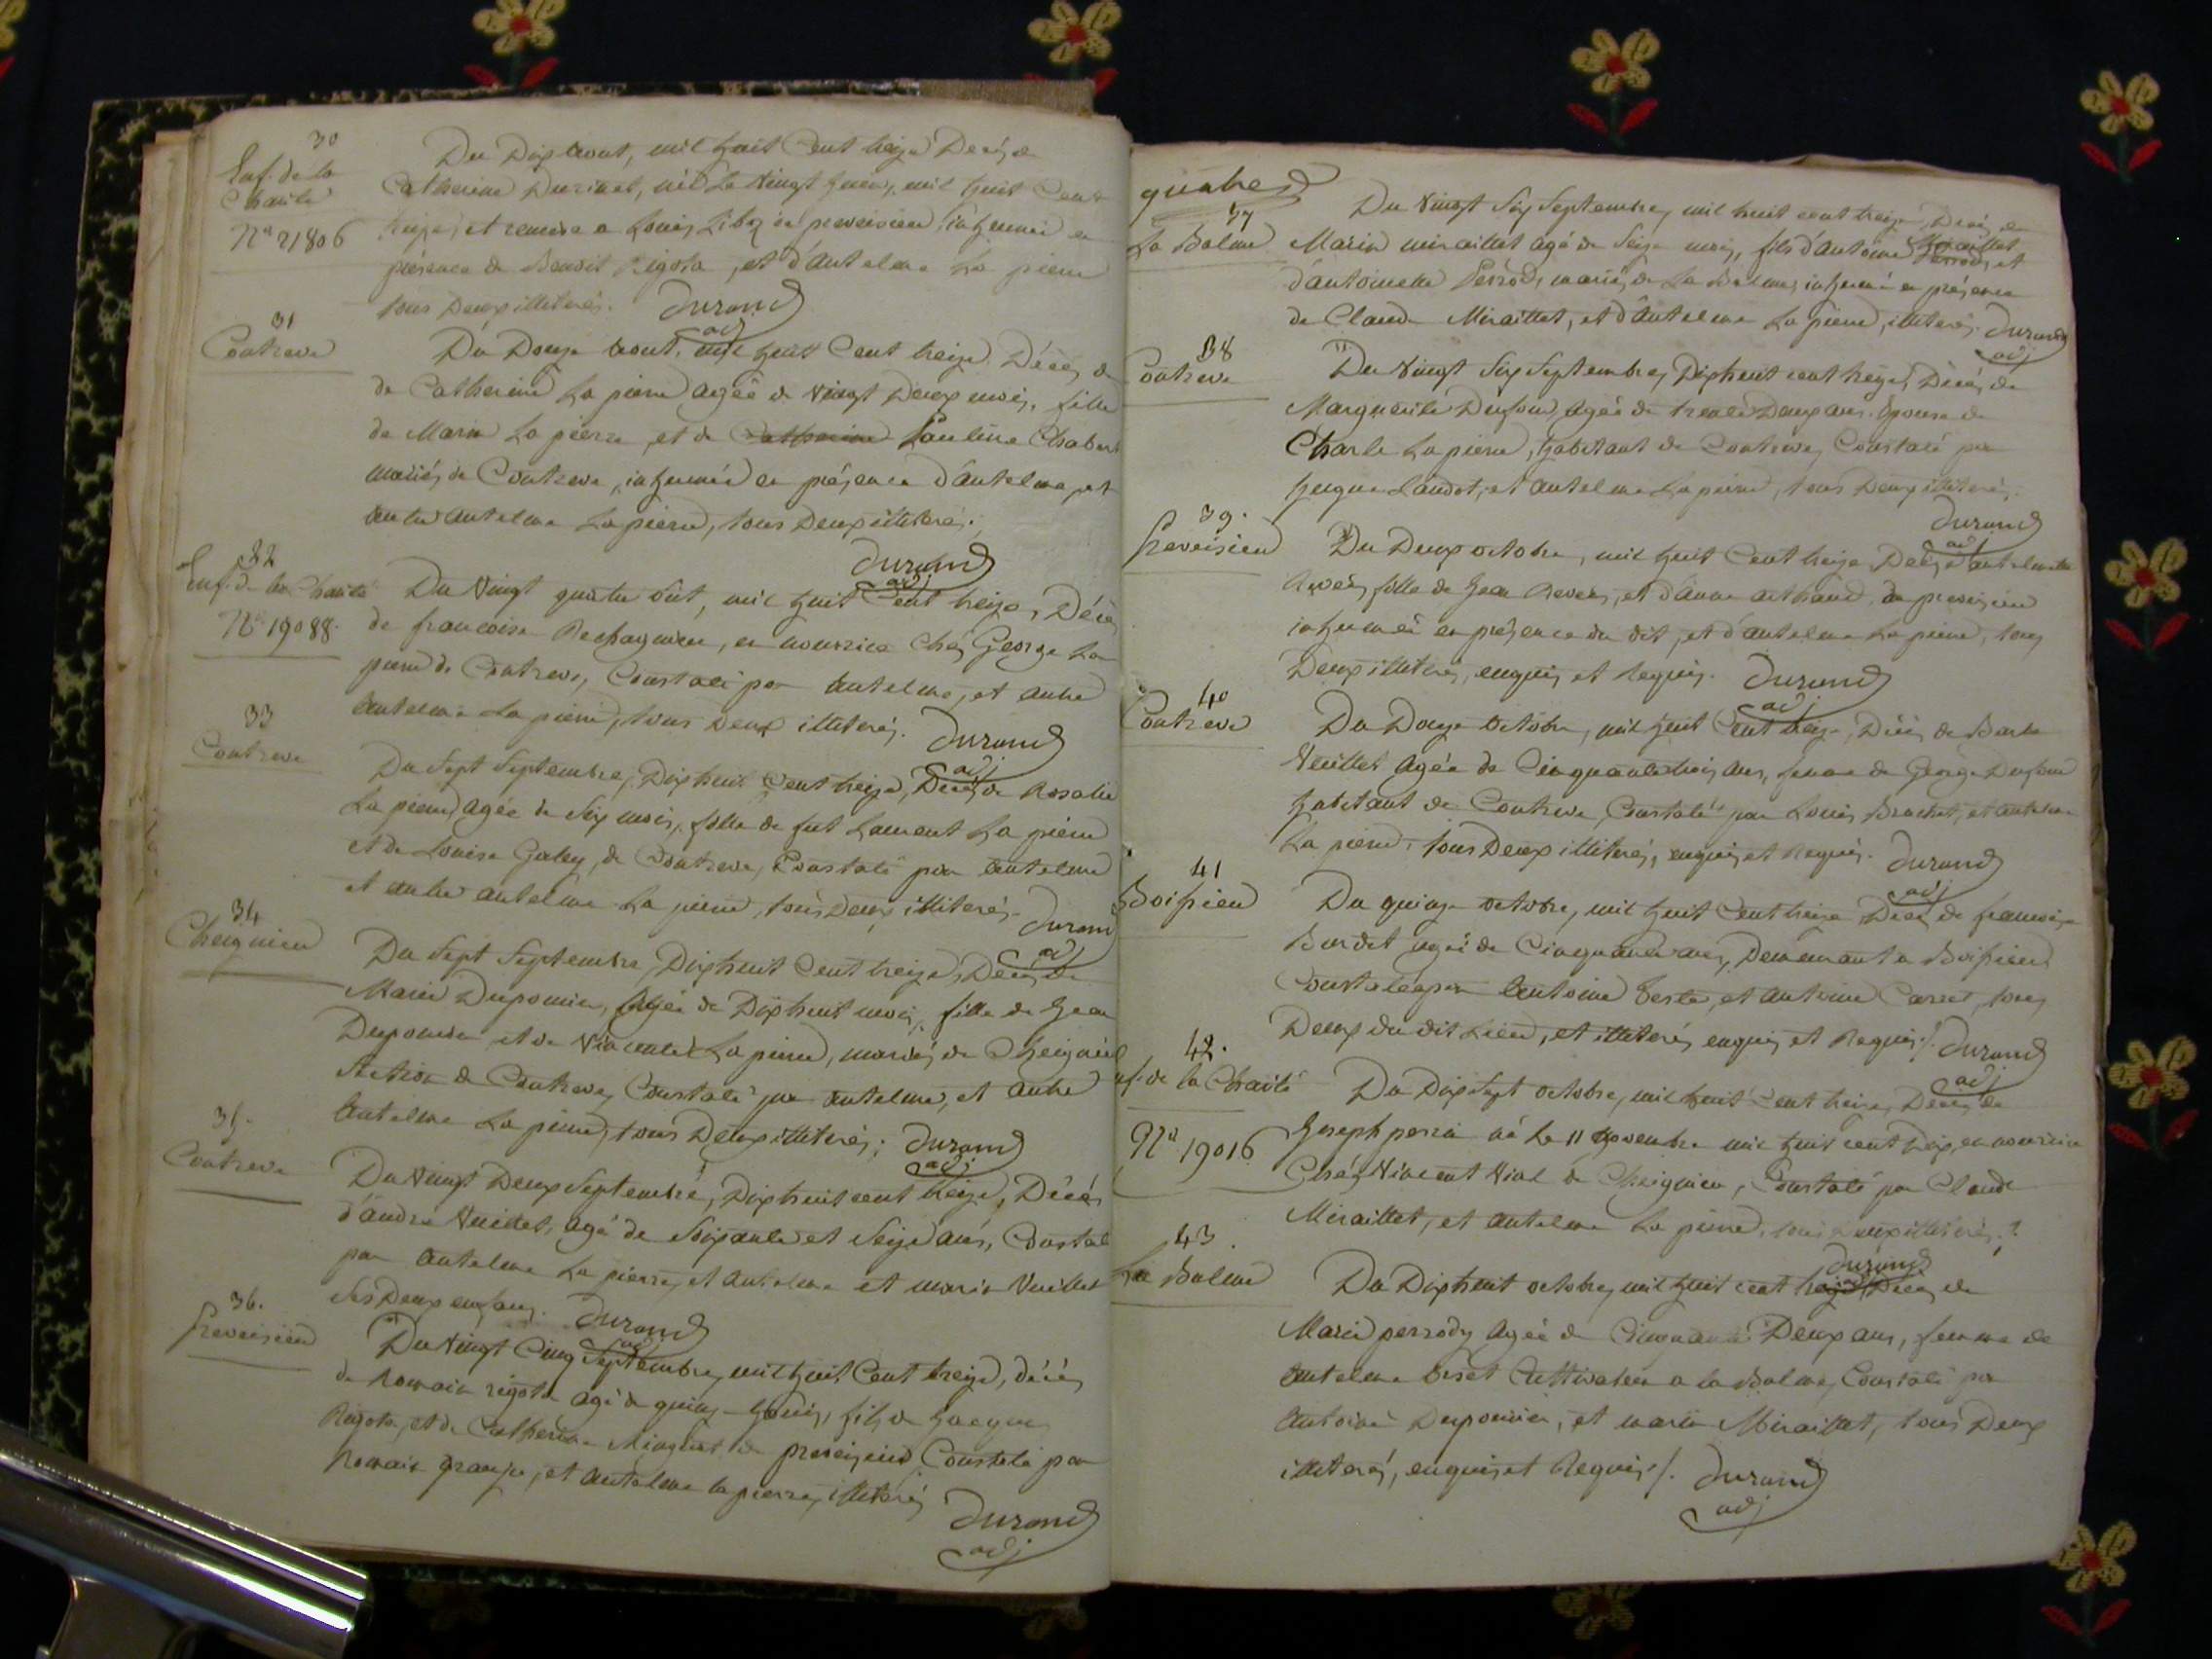 30
Enf. de la
Charité
No 21806
Du Dix aout, mil huit Cent treize Decès de
Catherine Durinet, née Le Vingt mil huit Cent
treize, et remise a Louis de preveisieu, inhumée en
présence de Benoit Rigota, et d'Antelme La pierre
tous Deux illiterés. Durand
adj
31
Contreve
Du Douze aout, mil huit Cent treize, Décès de
de Catherine La pierre agée de Vingt Deux mois, fille
de Marin La pierre, et de Catherine Pauline Chabert
mariés de Contreve, inhumée en présence d'Antelme, et
autre Antelme La pierre, tous Deux illiterés.
Durand
adj
32
Enf. de la Charité
No 19088.
Du Vingt quatre out, mil huit Cent treize, Décès
de francoise, en nourrice Chés George La
pierre de Contreve, Constaté par Antelme, et autre
Antelme La pierre, tous Deux illiterés. Durand
adj
33
Contreve
Du Sept Septembre, Dixhuit Cent treize, Décès de Rosalie
La pierre, agée de Six mois, fille de fut Laurent La pierre
et de Louise Galey, de Contreve, Constaté par Antelme
et autre Antelme La pierre, tous Deux illiterés. Durand
adj
34
Cheignieu
Du Sept Septembre, Dixhuit Cent treize, Décès de
Marie Duponier, Agée de Dixhuit mois, fille de Jean
Duponier et de Vincente La pierre, mariés de Cheignieu
Section de Contreve, Constaté par Antelme, et autre
Antelme La pierre, tous Deux illiterés; Durand
adj
35.
Contreve
Du Vingt Deux Septembre, Dixhuit cent treize, Décès
d'andré Vuillet, agé de Soixante et Seize ans, Constaté
par Antelme La pierre, et Antelme et marie Vuillet
Ses Deux enfans. Durand
adj
36.
Preveisieu
Du Vingt Cinq Septembre, mil huit Cent treize, décès
de Romain rigota agé de quinze jours, fils de Jacques
Rigota, et de Catherine de preveisieu Constaté par
Romain grange, et Antelme la pierre, illiterés
Durand
adj
quatre
37
La Balme
Du Vingt Six Septembre, mil huit cent treize, Décès de
Marin miraillet agé de Seize mois, fils d'antoine Miraillet, et
d'antoinette Perrod, mariés de La Balme, inhumé en présence
de Claude Miraillet, et d'Antelme La pierre, illiterés. Durand
adj
38
Contreve
Du Vingt Six Septembre, Dixhuit cent treize, Décès de
Marguerite Dufour, Agée de trente Deux ans. Epouse de
Charle La pierre, habitant de Contreve, Constaté par
hugue Landot, et Antelme La pierre, tous Deux illiterés.
Durand
adj
39.
Preveisieu
Du Deux octobre, mil huit Cent treize Decès d'antelmette
fille de Jean et d'anne arthaud, de preveisieu
inhumée en présence du dit, et d'antelme La pierre, tous
Deux illiterés, enquis et Requis. Durand
adj
40
Contreve
Du Douze Octobre, mil huit Cent treize, Décès de Barbe
Veuillet Agée de Cinquante trois ans, femme de George Dufour
habitant de Contreve, Constaté par Louis Brachet, et antelme
La pierre, tous Deux illiterés, enquis et Requis. Durand
adj
41
Boissieu
Du quinze octobre, mil huit Cent treize Décès de francoise
Burdet agée de Cinquante ans, Demeurant a Boissieu
Constaté par Antoine et Antoine Carret, tous
Deux du dit Lieu, et illiterés enquis et Requis/. Durand
adj
42.
nf. de la Charité
No 19016
Du Dix Sept octobre, mil huit Cent treize, Décès de
Joseph né Le 11 Novembre mil huit cent Dix, en nourrice
Chés Vincent Vial de Cheignieu, Constaté par Claude
Miraillet, et Antelme La pierre, tous Deux illiterés.
Durand
43
La Balme
Du Dixhuit octobre, mil huit cent treize Décès de
Marie perrody Agée de Cinquante Deux ans, femme de
Antelme Cultivateur a la Balme, Constaté par
Antoine Duponier, et marin Miraillet, tous Deux
illiterés, enquis et Requis/. Durand
adj